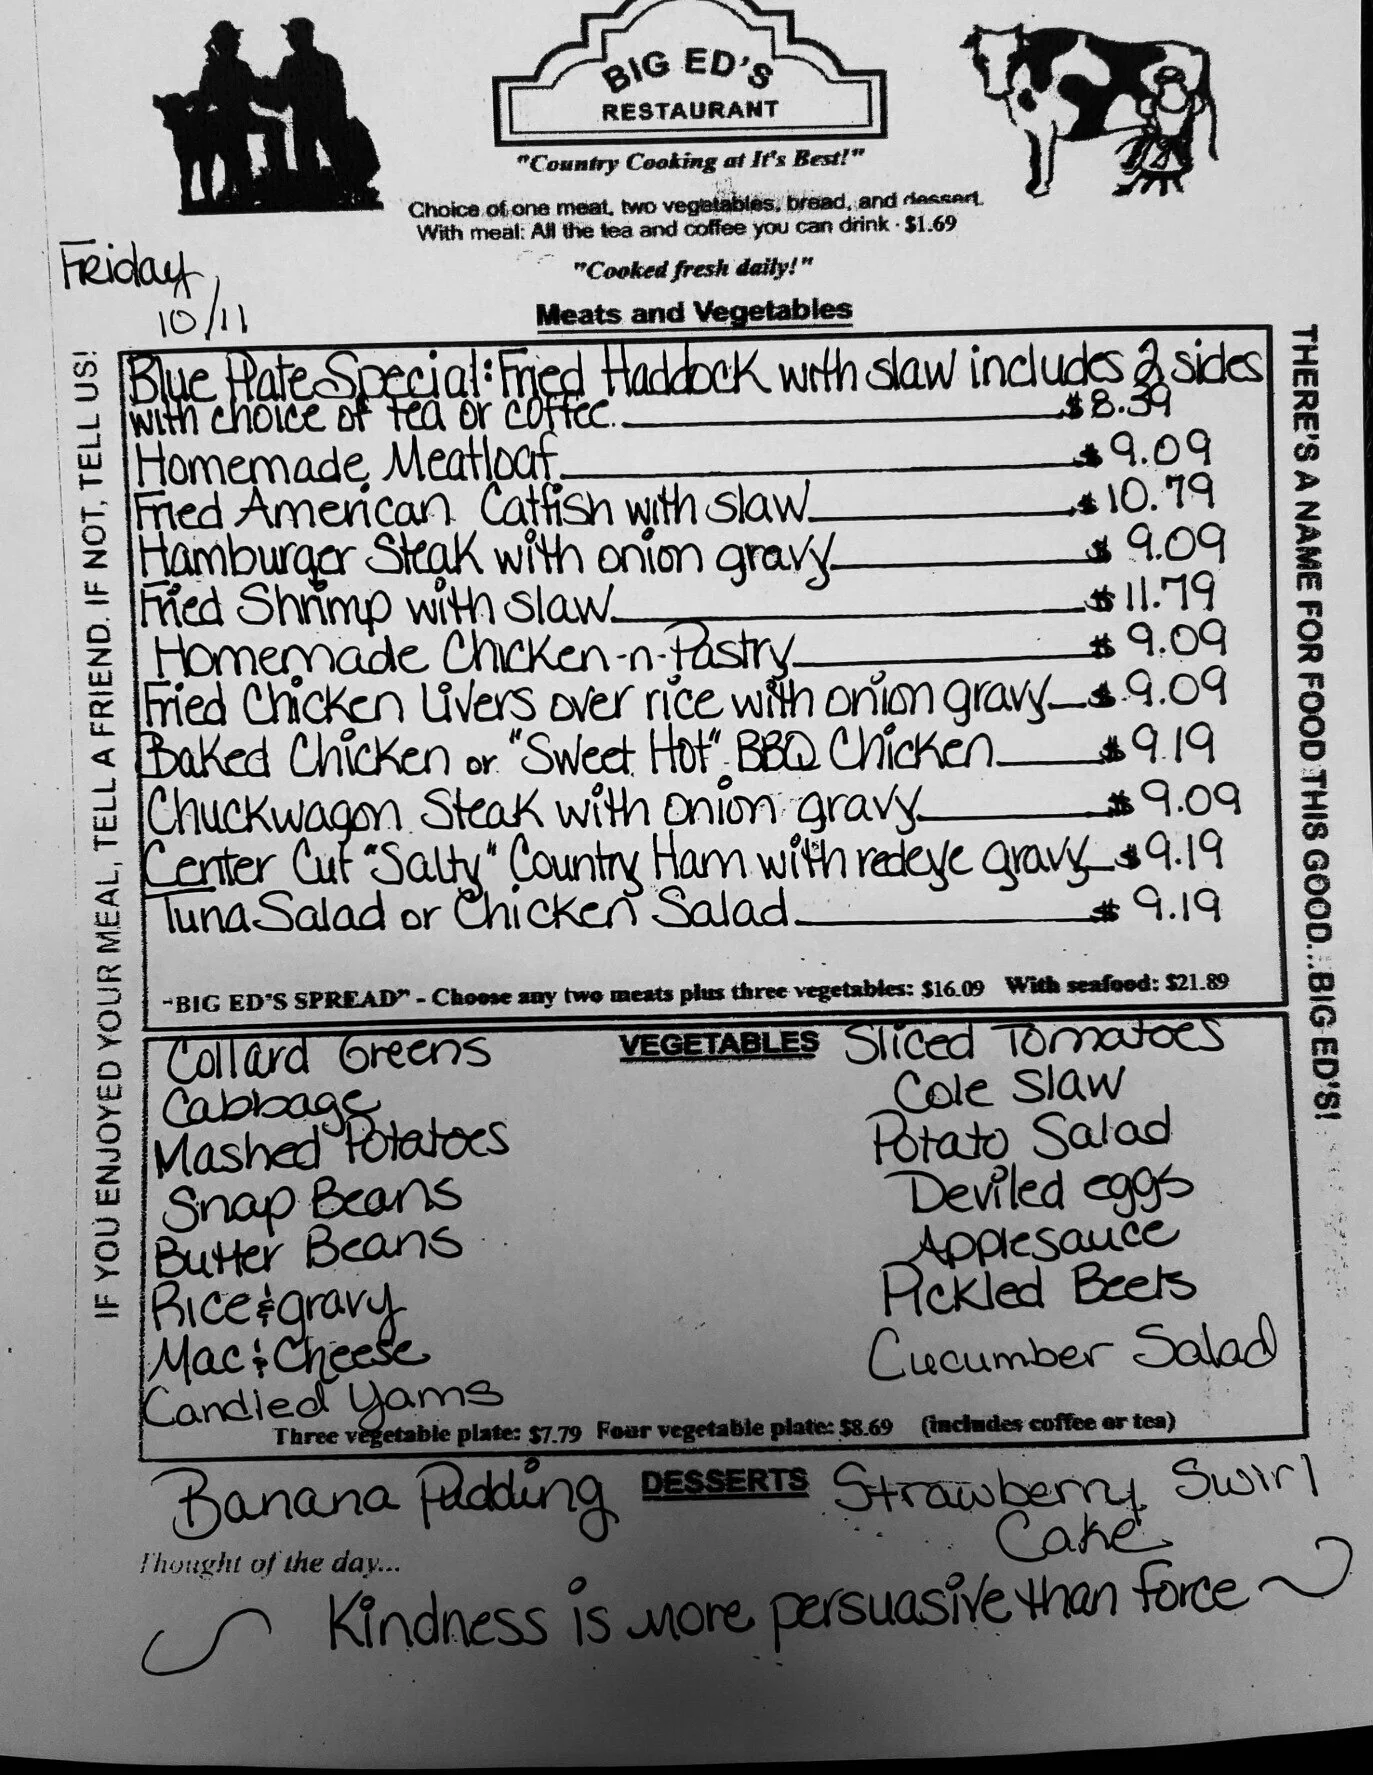 BIG ED'S
RESTAURANT
"Country Cooking at It's Best!"
Choice of one meat, two vegetables, bread, and dessert.
With meal: All the tea and coffee you can drink · $1.69
"Cooked fresh daily!"
Friday
10/11
Meats and Vegetables
IF YOU ENJOYED YOUR MEAL, TELL A FRIEND. IF NOT, TELL US!
THERE'S A NAME FOR FOOD THIS GOOD...BIG ED'S!
Blue Plate Special: Fried Haddock with slaw includes 2 sides
with choice of tea or coffee. $8.39
Homemade Meatloaf $9.09
Fried American Catfish with slaw $10.79
Hamburger Steak with onion gravy $9.09
Fried Shrimp with slaw $11.79
Homemade Chicken-n-Pastry $9.09
Fried Chicken Livers over rice with onion gravy $9.09
Baked Chicken or "Sweet Hot" BBQ Chicken $9.19
Chuckwagon Steak with onion gravy $9.09
Center Cut "Salty" Country Ham with redeye gravy $9.19
Tuna Salad or Chicken Salad $9.19
"BIG ED'S SPREAD" - Choose any two meats plus three vegetables: $16.09 With seafood: $21.89
VEGETABLES
Collard Greens
Cabbage
Mashed Potatoes
Snap Beans
Butter Beans
Rice & gravy
Mac & Cheese
Candied Yams
Sliced Tomatoes
Cole Slaw
Potato Salad
Deviled eggs
Applesauce
Pickled Beets
Cucumber Salad
Three vegetable plate: $7.79 Four vegetable plate: $8.69 (includes coffee or tea)
DESSERTS
Banana Pudding
Strawberry Swirl
Cake
Thought of the day...
Kindness is more persuasive than force